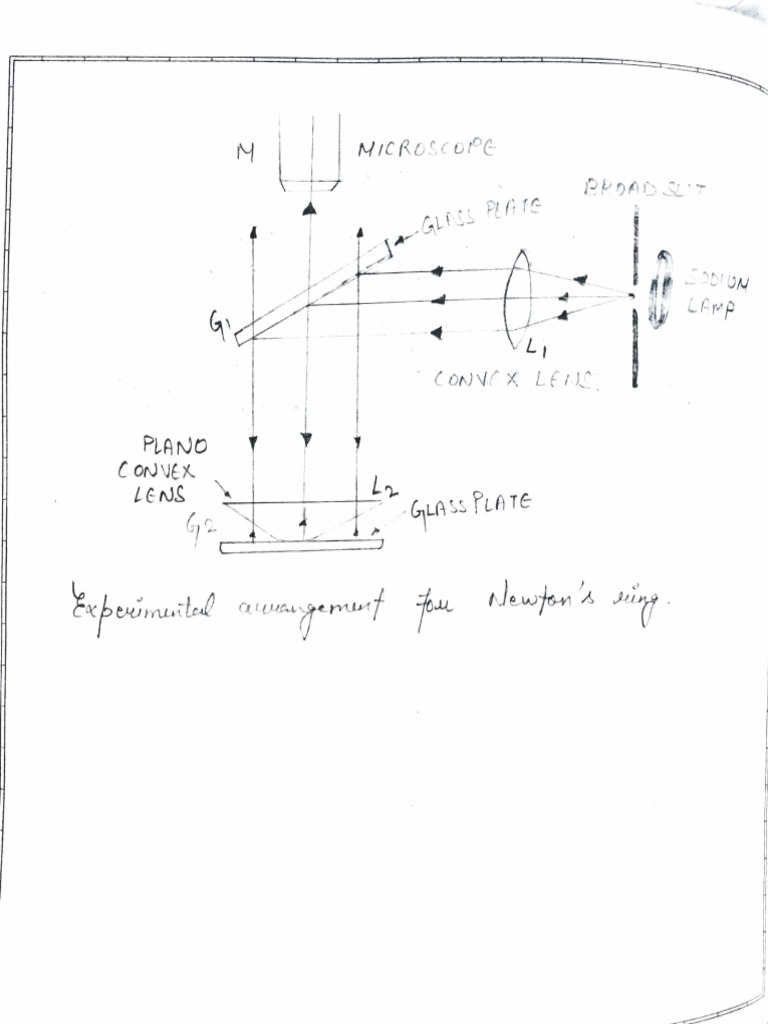 M MICROSCOPE
BROAD SLIT
GLASS PLATE
SODIUM
LAMP
G1
L1
CONVEX LENS.
PLANO
CONVEX
LENS
L2
G2
GLASS PLATE
Experimental arrangement for Newton's ring.